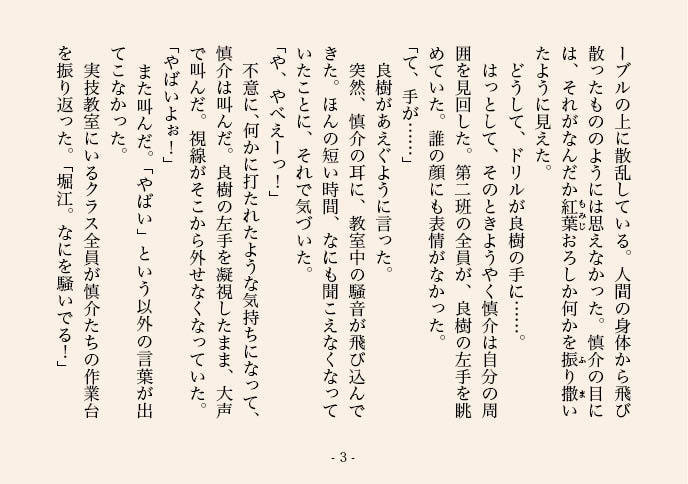 ーブルの上に散乱している。人間の身体から飛び
散ったもののようには思えなかった。慎介の目に
は、それがなんだか紅葉おろしか何かを振り撒い
たように見えた。
どうして、ドリルが良樹の手に……。
はっとして、そのときようやく慎介は自分の周
囲を見回した。第二班の全員が、良樹の左手を眺
めていた。誰の顔にも表情がなかった。
「て、手が……」
良樹があえぐように言った。
突然、慎介の耳に、教室中の騒音が飛び込んで
きた。ほんの短い時間、なにも聞こえなくなって
いたことに、それで気づいた。
「や、やべえーっ！」
不意に、何かに打たれたような気持ちになって、
慎介は叫んだ。良樹の左手を凝視したまま、大声
で叫んだ。視線がそこから外せなくなっていた。
「やばいよぉ！」
また叫んだ。「やばい」という以外の言葉が出
てこなかった。
実技教室にいるクラス全員が慎介たちの作業台
を振り返った。「堀江。なにを騒いでる！」
- 3 -